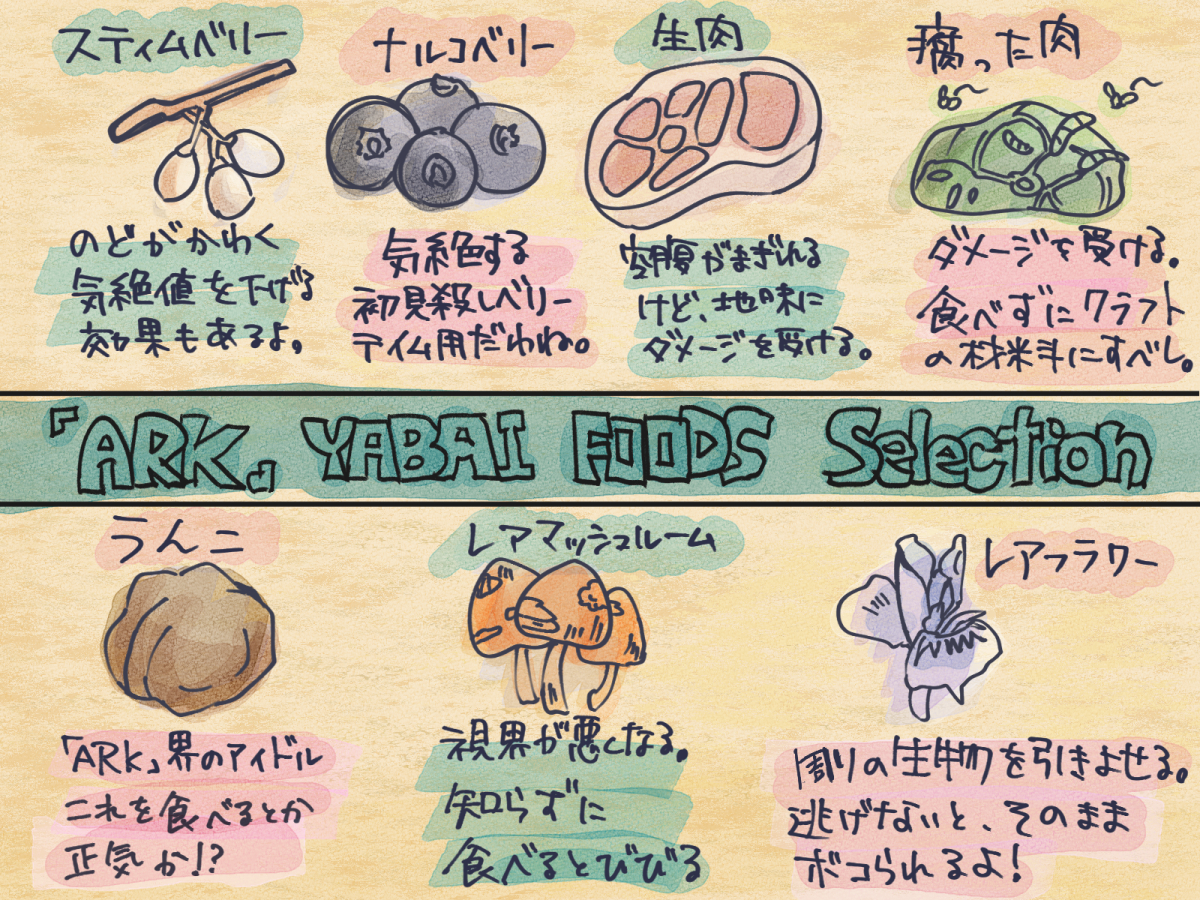 スティムベリー
のどがかわく
気絶値を下げる
効果もあるよ。
ナルコベリー
気絶する
初見殺しベリー
テイム用だわね。
生肉
空腹がまぎれる
けど、地味に
ダメージを受ける。
腐った肉
ダメージを受ける。
食べずにクラフト
の材料にすべし。
『ARK』 YABAI FOODS Selection
うんこ
「ARK」界のアイドル
これを食べるとか
正気か!?
レアマッシュルーム
視界が悪くなる。
知らずに
食べるとびびる
レアフラワー
周りの生物を引きよせる。
逃げないと、そのまま
ボコられるよ!